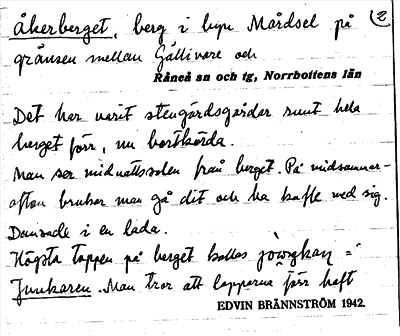 åkerberget, berg i byn Mårdsel på (2
gränsen mellan Gällivare och
Råneå sn och tg, Norrbottens län
Det har varit stengärdsgårdar runt hela
berget förr, nu bortkörda.
Man ser midnattssolen från berget. På midsommar-
afton brukar man gå dit och ha kaffe med sig.
Dansade i en lada.
Högsta toppen på berget kallas =
Junkaren. Man tror att lapparna förr haft
EDVIN BRÄNNSTRÖM 1942.